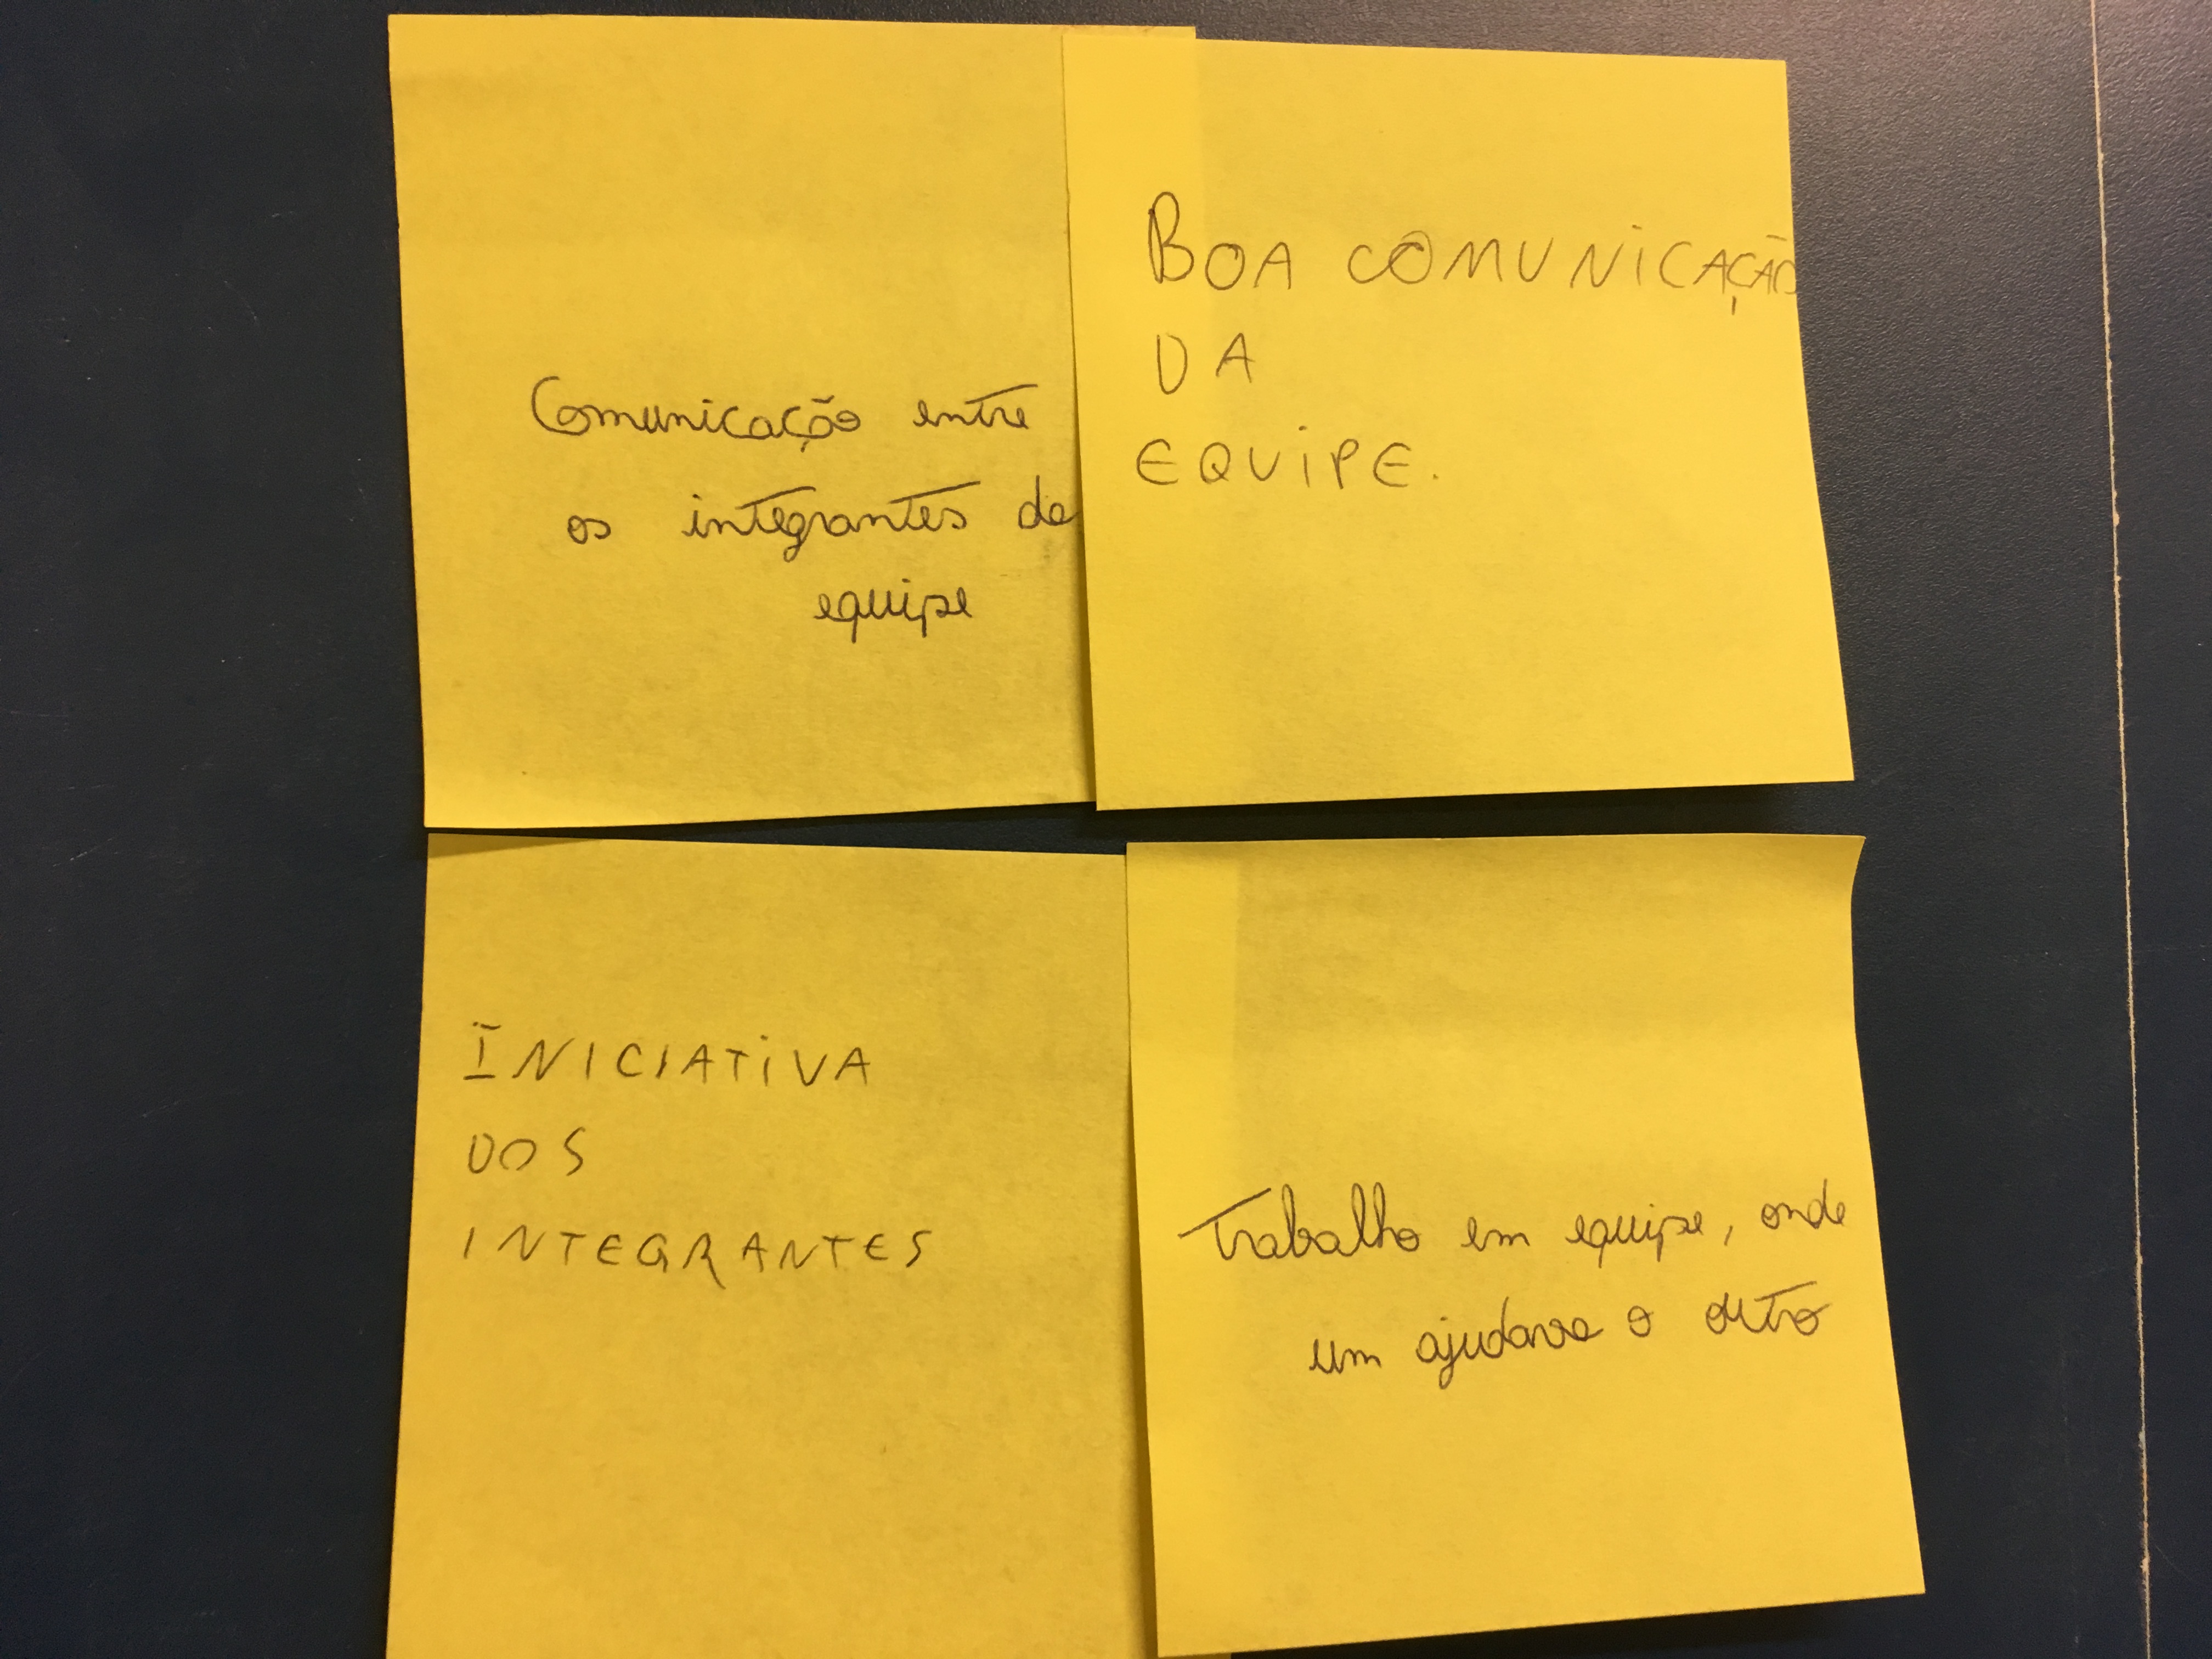 Comunicação entre
os integrantes da
equipe
BOA COMUNICAÇÃO
DA
EQUIPE.
INICIATIVA
DOS
INTEGRANTES
Trabalho em equipe, onde
um ajudava o outro